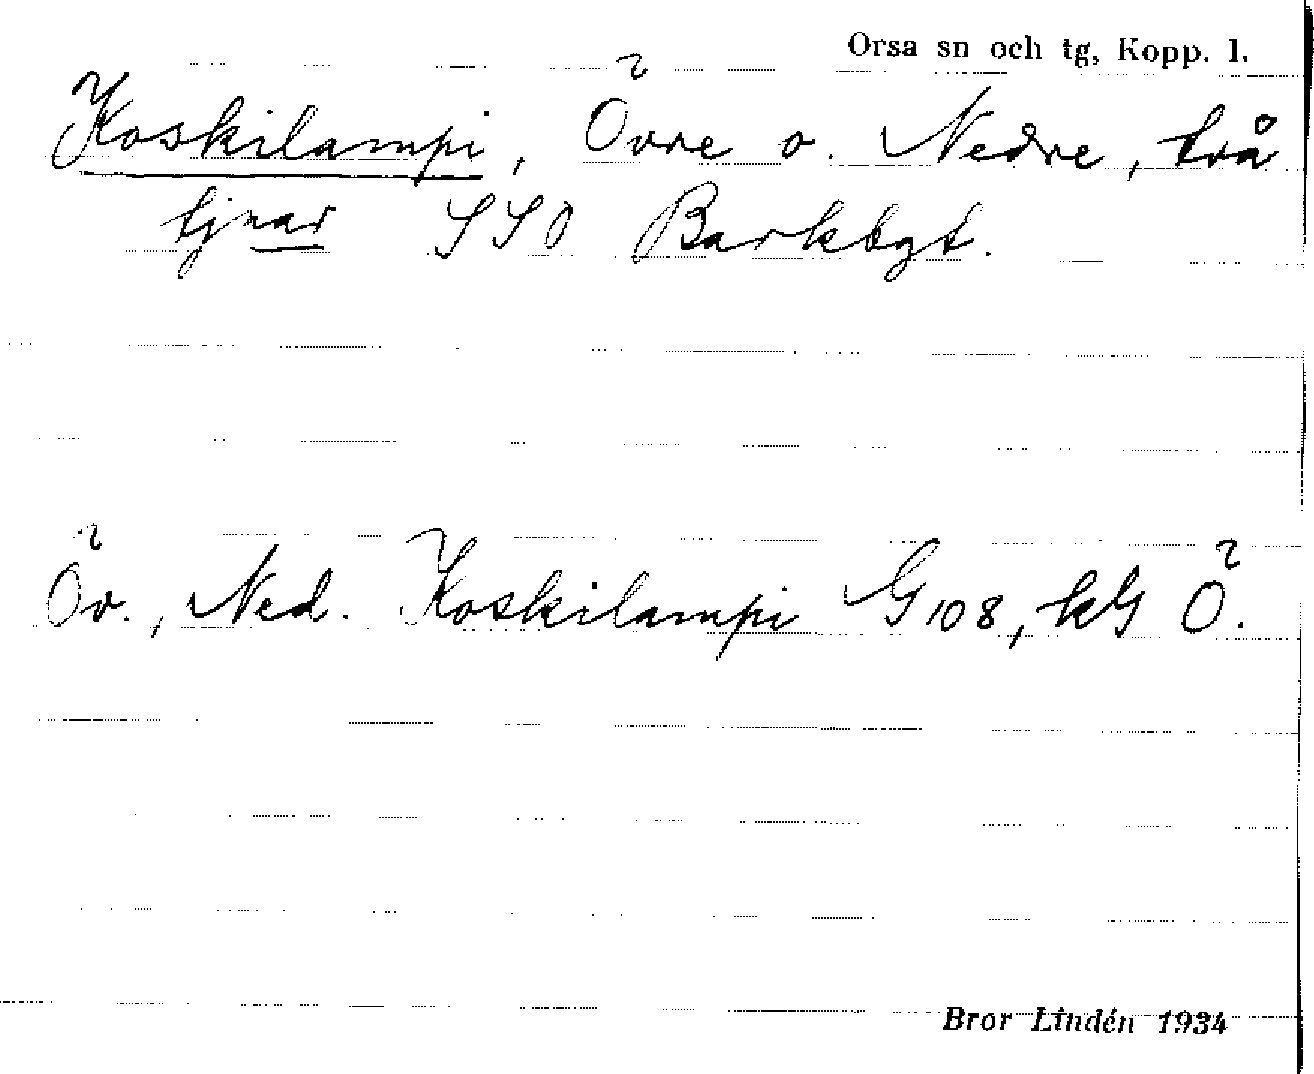 Orsa sn och tg, Kopp. l.
Koskilampi, Övre o. Nedre, två
tjnar SSO Barkbgt.
Öv., Ned. Koskilampi G 108, kG Ö.
Bror Lindén 1934